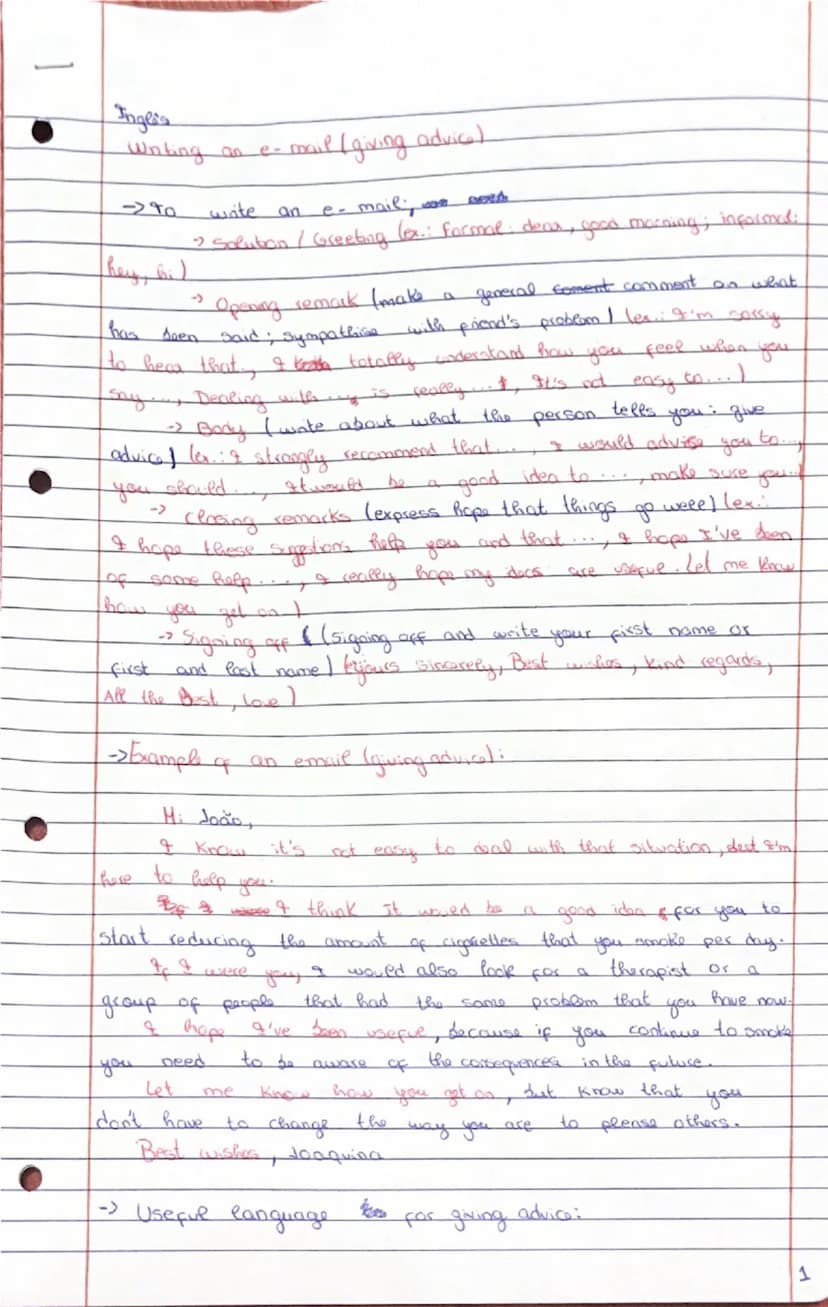 Inglês
Writing an e-mail (giving advice)
→ To write an e-mail;
→ Solution / Greeting (ex.: Formal: dear, good morning; informal:
hey, hi)
→ Opening remark (make a general coment comment on what
has been said; sympathise with friend's problem) (ex.: I'm sorry
to hear that, I totally understand how you feel when you
say..., Dealing with ... is really ..., It's not easy to...)
→ Body (write about what the person tells you; give
advice) (ex.: I strongly recommend that..., I would advise you to...,
you should..., It would be a good idea to..., make sure you...)
→ Closing remarks (express hope that things go well) (ex.:
I hope these sugestions help you and that ..., I hope I've been
of some help..., I really hope my ideas are useful. Let me know
how you get on)
→ Signing off (signing off and write your first name or
first and last name) (yours sincerely, Best wishes, kind regards,
All the Best, Love)
→ Example of an email (giving advice):
Hi João,
I know it's not easy to deal with that situation, but I'm
here to help you.
If I were I think it would be a good idea for you to
start reducing the amount of cigarettes that you smoke per day.
If I were you, I would also look for a therapist or a
group of people that had the same problem that you have now.
I hope I've been useful, because if you continue to smoke
you need to be aware of the consequences in the future.
Let me know how you get on, but know that you
don't have to change the way you are to please others.
Best wishes, Joaquina
→ Useful language for giving advice:
1